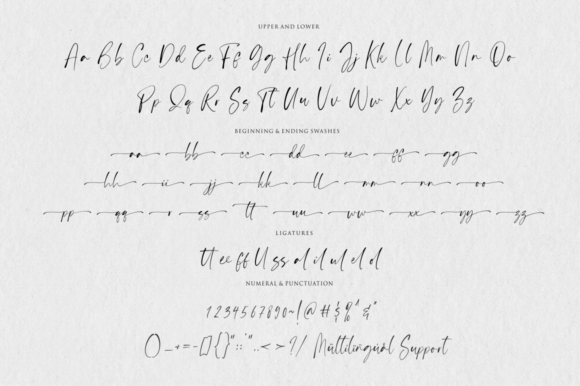 UPPER AND LOWER
Aa Bb Cc Dd Ee Ff Gg Hh Ii Jj Kk Ll Mm Nn Oo
Pp Qq Rr Ss Tt Uu Vv Ww Xx Yy Zz
BEGINNING & ENDING SWASHES
aa bb cc dd ee ff gg
hh ii jj kk ll mm nn oo
pp qq r ss tt uu ww xx yy zz
LIGATURES
tt ee ff ll ss al il ul el ol
NUMERAL & PUNCTUATION
1234567890~!@#$%^&*
()_+=-[]{}"::'"..<>?/ Multilingual Support